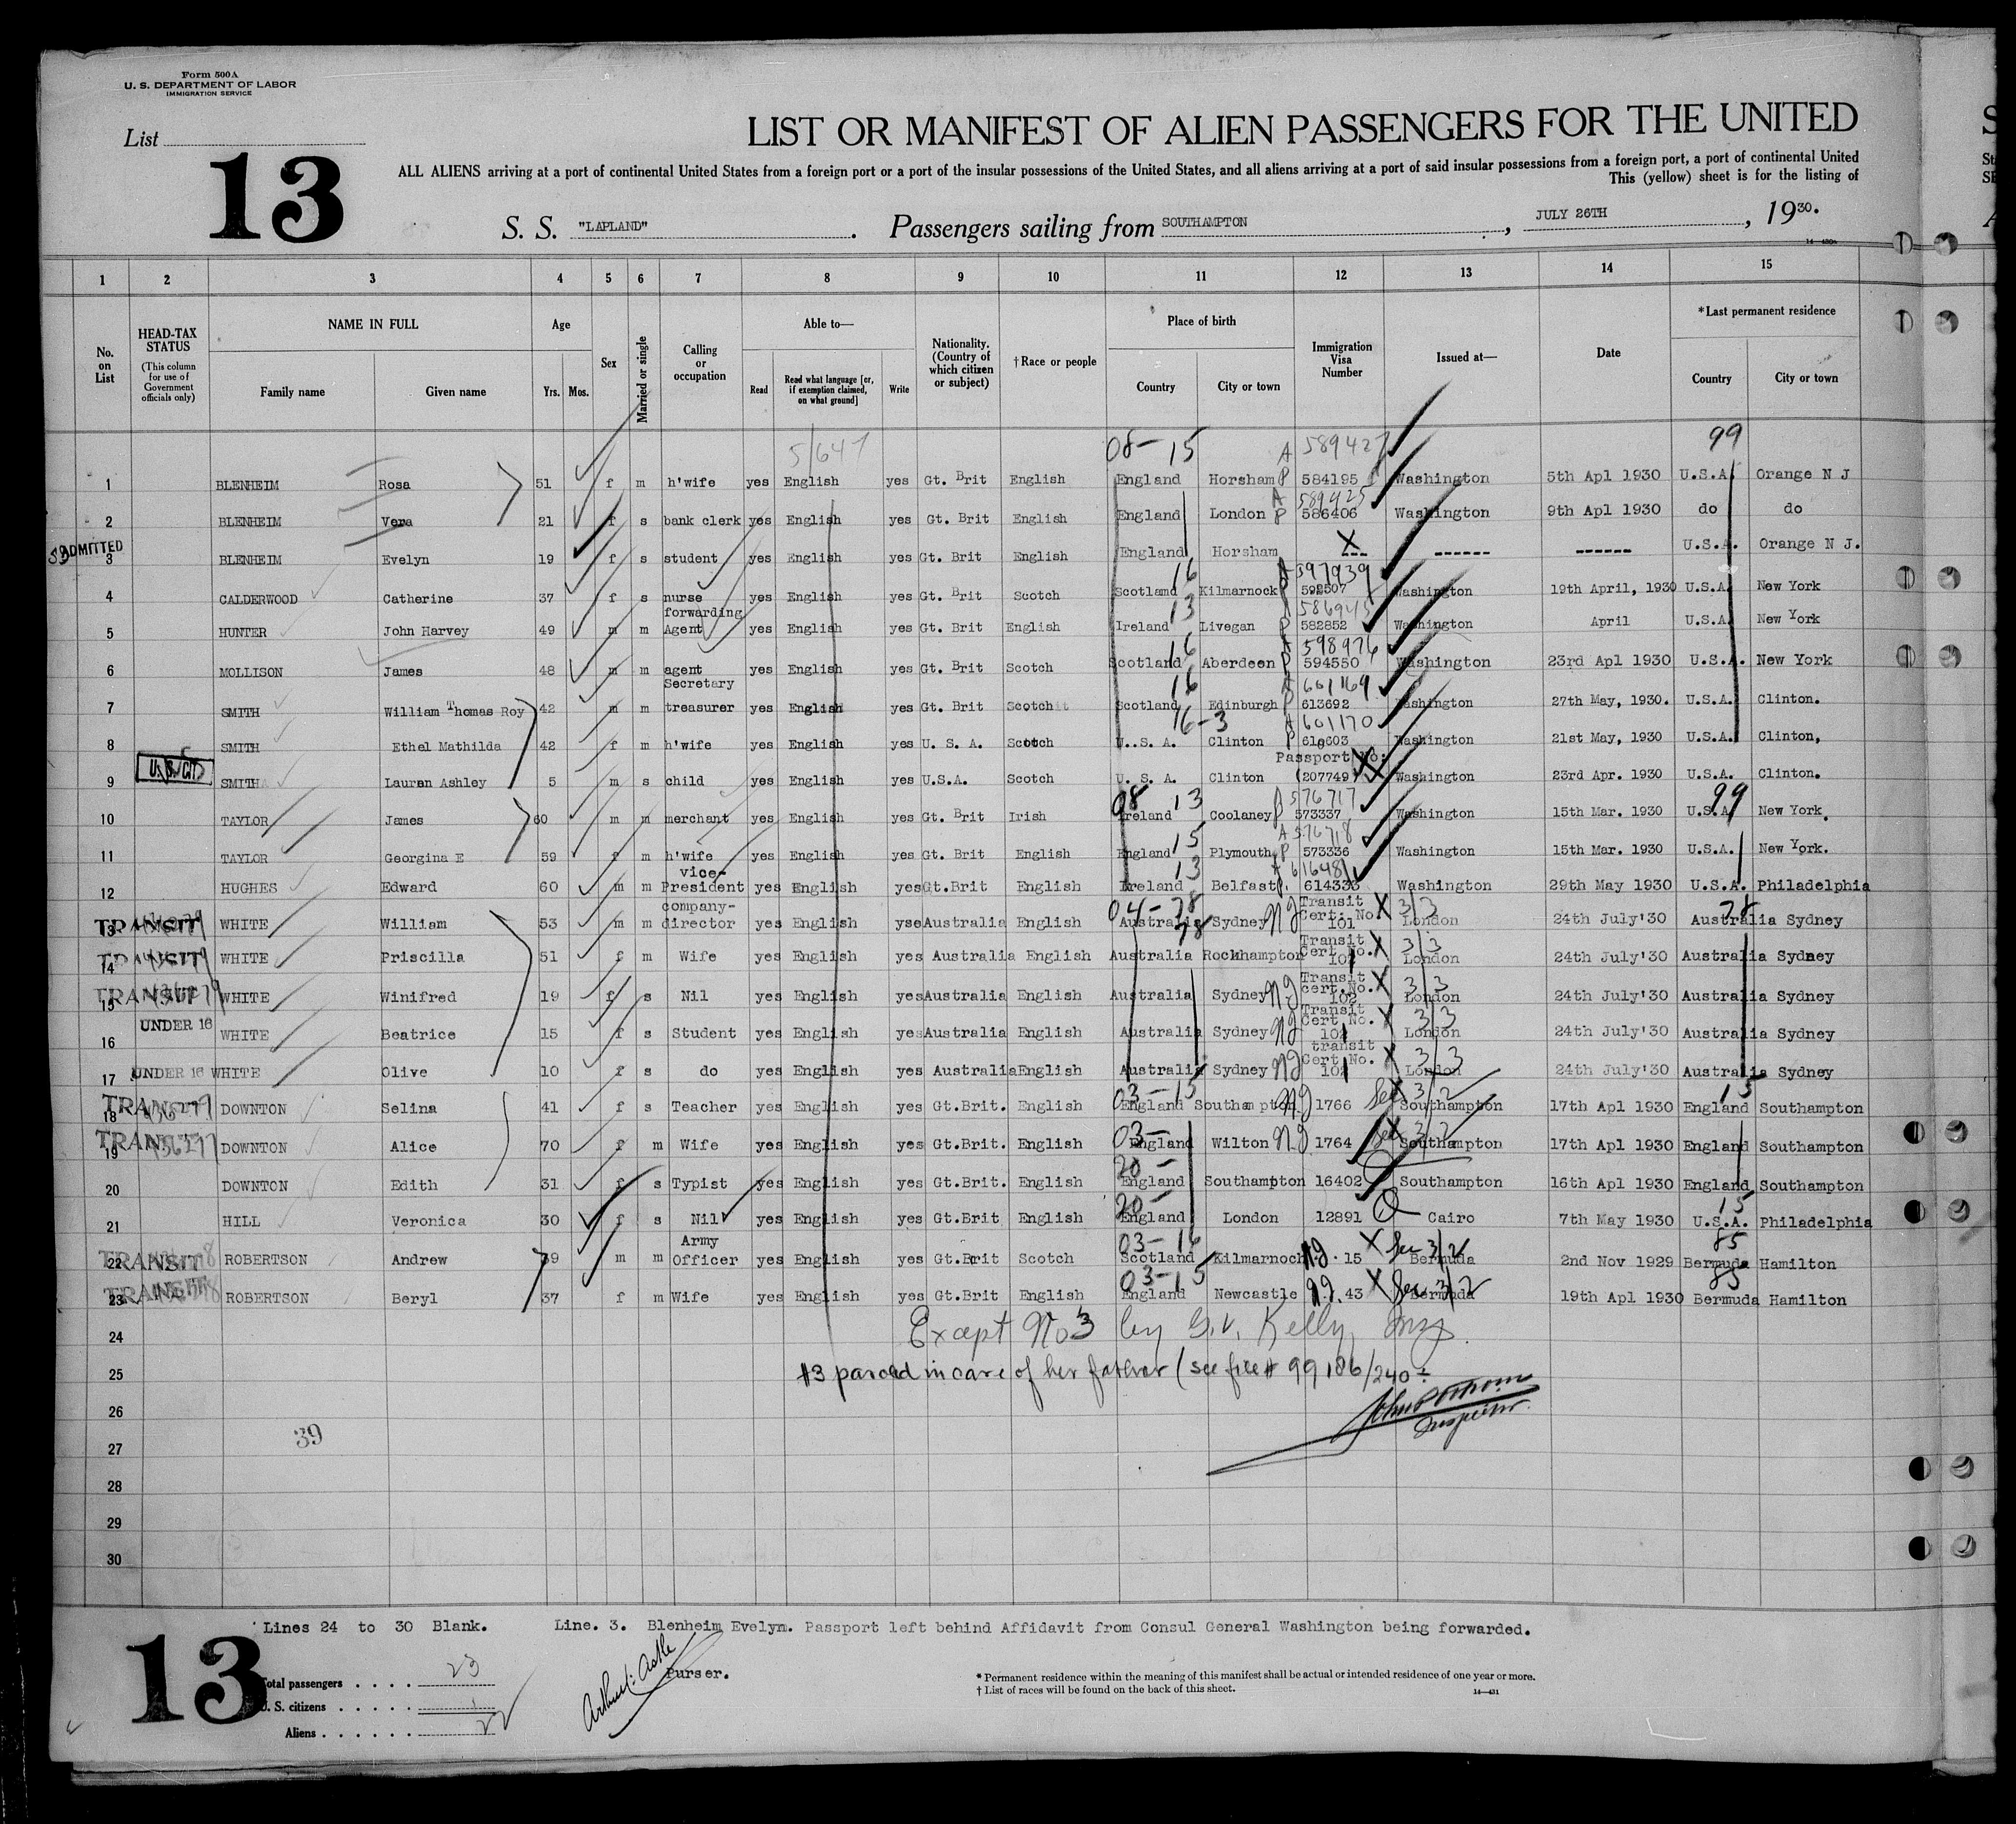 Form 500 A
U. S. DEPARTMENT OF LABOR
IMMIGRATION SERVICE
List
13
LIST OR MANIFEST OF ALIEN PASSENGERS FOR THE UNITED
ALL ALIENS arriving at a port of continental United States from a foreign port or a port of the insular possessions of the United States, and all aliens arriving at a port of said insular possessions from a foreign port, a port of continental United
This (yellow) sheet is for the listing of
S. S. "LAPLAND". Passengers sailing from SOUTHAMPTON, JULY 26TH, 1930.
1 2 3 4 5 6 7 8 9 10 11 12 13 14 15
No. on List
HEAD-TAX STATUS
(This column for use of Government officials only)
NAME IN FULL
Family name Given name
Age
Yrs. Mos.
Sex
Married or single
Calling or occupation
Able to—
Read Read what language [or, if exemption claimed, on what ground] Write
Nationality. (Country of which citizen or subject)
† Race or people
Place of birth
Country City or town
Immigration Visa Number
Issued at—
Date
* Last permanent residence
Country City or town
5/647 08-15 A 589427 99
1 BLENHEIM Rosa 51 f m h'wife yes English yes Gt. Brit English England Horsham P 584195 Washington 5th Apl 1930 U.S.A. Orange N J
A 589425
2 BLENHEIM Vera 21 f s bank clerk yes English yes Gt. Brit English England London P 586406 Washington 9th Apl 1930 do do
ADMITTED
3 BLENHEIM Evelyn 19 f s student yes English yes Gt. Brit English England Horsham X --- ------ ------ U.S.A. Orange N J.
16 A 597939
4 CALDERWOOD Catherine 37 f s nurse yes English yes Gt. Brit Scotch Scotland Kilmarnock P 592507 Washington 19th April, 1930 U.S.A. New York
13 586945
5 HUNTER John Harvey 49 m m forwarding Agent yes English yes Gt. Brit English Ireland Livegan P 582852 Washington April U.S.A. New York
16 A 598976
6 MOLLISON James 48 m m agent yes English yes Gt. Brit Scotch Scotland Aberdeen P 594550 Washington 23rd Apl 1930 U.S.A. New York
16 A 601169
7 SMITH William Thomas Roy 42 m m Secretary treasurer yes English yes Gt. Brit Scotch Scotland Edinburgh P 613692 Washington 27th May, 1930. U.S.A. Clinton.
16-3 A 601170
8 SMITH Ethel Mathilda 42 f m h'wife yes English yes U. S. A. Scotch U. S. A. Clinton P 610603 Washington 21st May, 1930 U.S.A. Clinton,
U.S. CIT Passport No:
9 SMITH Lauren Ashley 5 m s child yes English yes U.S.A. Scotch U. S. A. Clinton (207749) Washington 23rd Apr. 1930 U.S.A. Clinton.
08 13 A 576717 99
10 TAYLOR James 60 m m merchant yes English yes Gt. Brit Irish Ireland Coolaney P 573337 Washington 15th Mar. 1930 U.S.A. New York.
15 A 576718
11 TAYLOR Georgina E 59 f m h'wife yes English yes Gt. Brit English England Plymouth P 573336 Washington 15th Mar. 1930 U.S.A. New York.
13 A 616481
12 HUGHES Edward 60 m m vice-President yes English yes Gt.Brit English Ireland Belfast P. 614333 Washington 29th May 1930 U.S.A. Philadelphia
04-78
TRANSIT 13 WHITE William 53 m m company-director yes English yse Australia English Australia Sydney Transit Cert. No. 101 X 3/3 London 24th July'30 Australia Sydney
TRANSIT 14 WHITE Priscilla 51 f m Wife yes English yes Australia English Australia Rockhampton Transit Cert. No. 102 X 3/3 London 24th July'30 Australia Sydney
TRANSIT 15 WHITE Winifred 19 f s Nil yes English yes Australia English Australia Sydney Transit cert. No. 102 X 3/3 London 24th July'30 Australia Sydney
UNDER 16
16 WHITE Beatrice 15 f s Student yes English yes Australia English Australia Sydney Transit Cert. No. 102 X 3/3 London 24th July'30 Australia Sydney
17 UNDER 16 WHITE Olive 10 f s do yes English yes Australia English Australia Sydney transit Cert No. 102 X 3/3 London 24th July'30 Australia Sydney
03-15 15
TRANSIT 18 DOWNTON Selina 41 f s Teacher yes English yes Gt.Brit. English England Southampton 1766 Sec 3/2 Southampton 17th Apl 1930 England Southampton
03-
TRANSIT 19 DOWNTON Alice 70 f m Wife yes English yes Gt.Brit. English England Wilton 1764 Sec 3/2 Southampton 17th Apl 1930 England Southampton
20-
20 DOWNTON Edith 31 f s Typist yes English yes Gt.Brit. English England Southampton 16402 Southampton 16th Apl 1930 England Southampton
20- 15
21 HILL Veronica 30 f s Nil yes English yes Gt.Brit English England London 12891 Cairo 7th May 1930 U.S.A. Philadelphia
03-16 85
TRANSIT 22 ROBERTSON Andrew 39 m m Army Officer yes English yes Gt.Brit Scotch Scotland Kilmarnoch 15 X Sec 3/2 Bermuda 2nd Nov 1929 Bermuda Hamilton
03-15 85
TRANSIT 23 ROBERTSON Beryl 37 f m Wife yes English yes Gt.Brit English England Newcastle 43 X Sec 3/2 Bermuda 19th Apl 1930 Bermuda Hamilton
24 Except No 3 by G.V. Kelly, Insp.
25 #3 paroled in care of her father (see file # 99186/240
26
Inspector.
27
39
28
29
30
Lines 24 to 30 Blank. Line. 3. Blenheim Evelyn. Passport left behind Affidavit from Consul General Washington being forwarded.
13
Purser.
Total passengers 23
U. S. citizens 1
Aliens 22
* Permanent residence within the meaning of this manifest shall be actual or intended residence of one year or more.
† List of races will be found on the back of this sheet.
14—431